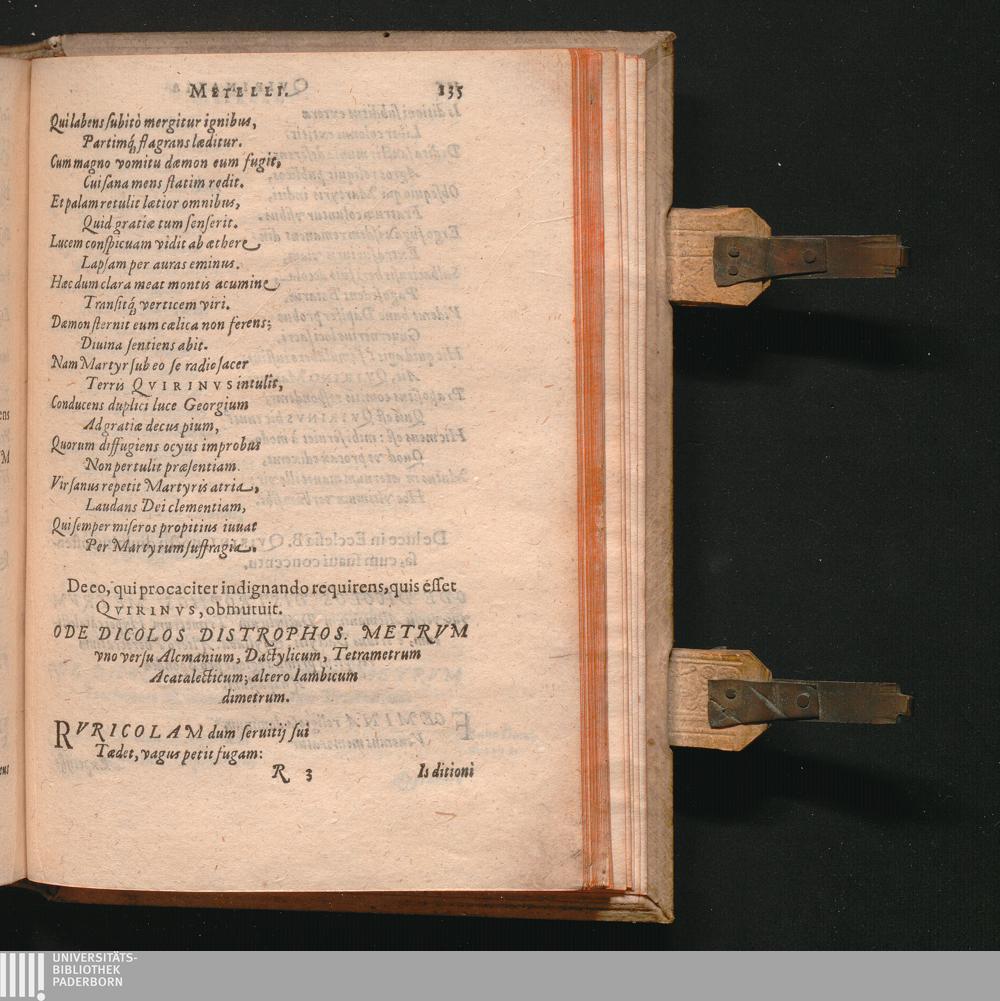 METELLI. 135
Qui labens subitò mergitur ignibus,
Partimq́; flagrans læditur.
Cum magno vomitu dæmon eum fugit,
Cui sana mens statim redit.
Et palam retulit lætior omnibus,
Quid gratiæ tum senserit.
Lucem conspicuam vidit ab æthere
Lapsam per auras eminus.
Hæc dum clara meat montis acumine
Transitq́; verticem viri.
Dæmon sternit eum cælica non ferens;
Diuina sentiens abit.
Nam Martyr sub eo se radio sacer
Terris QVIRINVS intulit,
Conducens duplici luce Georgium
Ad gratiæ decus pium,
Quorum diffugiens ocyus improbus
Non pertulit præsentiam.
Vir sanus repetit Martyris atria,
Laudans Dei clementiam,
Qui semper miseros propitius iuuat
Per Martyrum suffragia.
De eo, qui procaciter indignando requirens, quis esset
QVIRINVS, obmutuit.
ODE DICOLOS DISTROPHOS. METRVM
vno versu Alcmanium, Dactylicum, Tetrametrum
Acatalecticum; altero Iambicum
dimetrum.
RVRICOLAM dum seruitij sui
Tædet, vagus petit fugam:
R 3 Is ditioni
UNIVERSITÄTS-
BIBLIOTHEK
PADERBORN